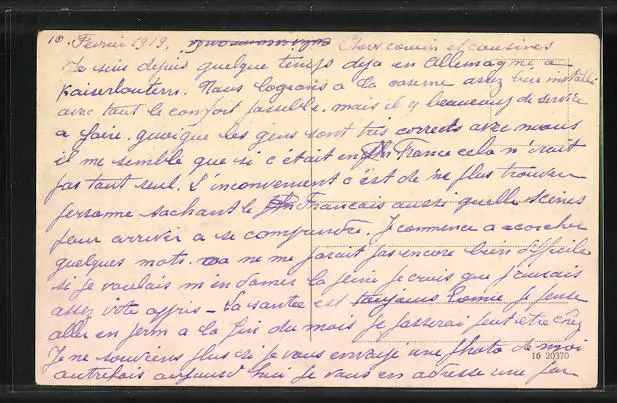 10. Fevrier 1919. Chers cousin et cousines
Je suis depuis quelque temps deja en Allemagne a
Kaiserloutern. Nous logeons a la caserne assez bien installés
avec tout le confort possible. mais il y beaucoup de service
a faire. quoique les gens sont très corrects avec nous
il me semble que si c'était en France cela n'irait
pas tout seul. L'inconvenient c'est de ne plus trouver
personne sachant le Francais aussi quelle scènes
pour arriver a se comprendre. Je commence a ecorcher
quelques mots. ca ne me parait pas encore bien difficile
si je voulais m'en donner la peine je crois que j'aurais
assez vite appris - La santée est toujours bonne je pense
aller en perm a la fin du mois je passerai peut etre chez
Je ne souviens plus si je vous envoyé une photo de moi
autrefois aujourd'hui je vous en adresse une
16 20370